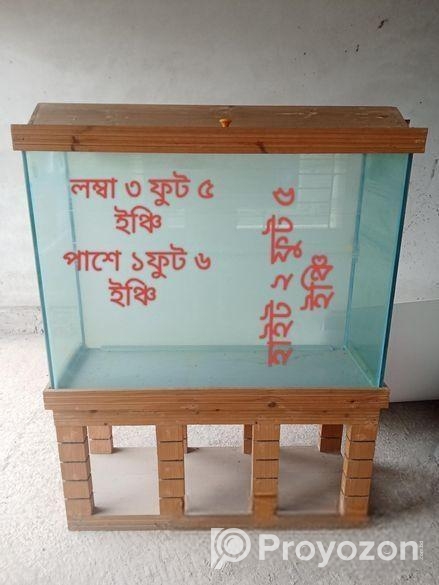 লম্বা ৩ ফুট ৫
ইঞ্চি
পাশে ১ফুট ৬
ইঞ্চি
হাইট ২ ফুট ৫
ইঞ্চি
Proyozon